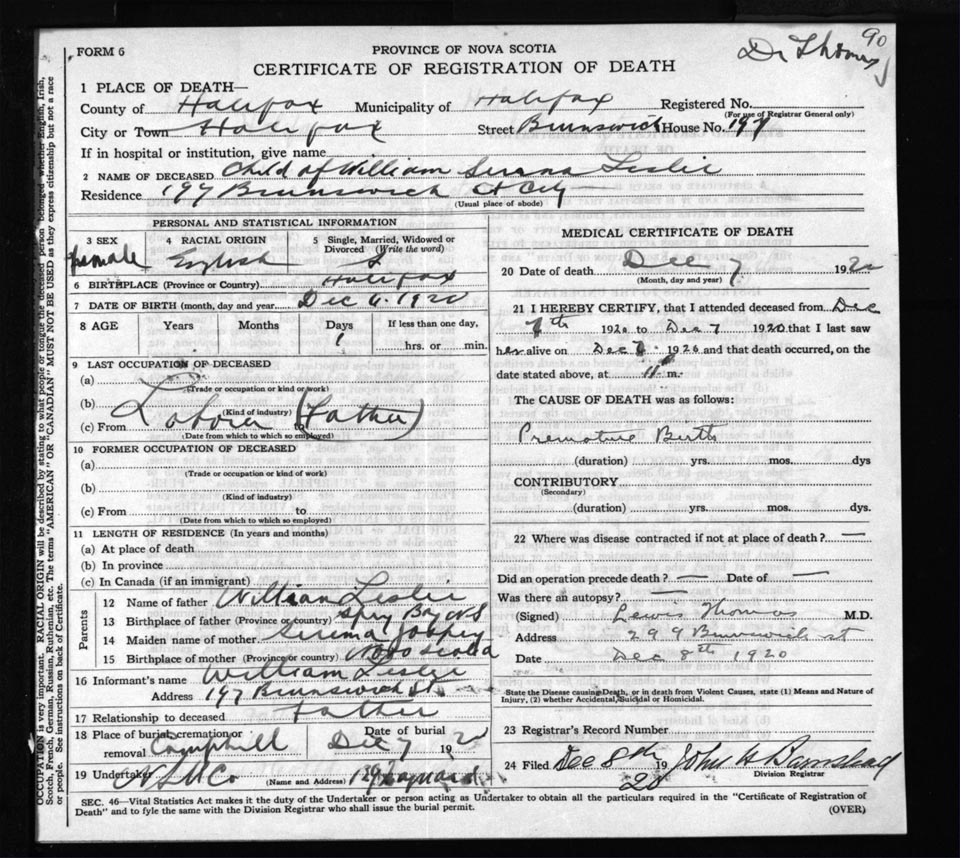 90
Dr Thomas
FORM 6
PROVINCE OF NOVA SCOTIA
CERTIFICATE OF REGISTRATION OF DEATH
1 PLACE OF DEATH—
County of Halifax Municipality of Halifax Registered No.
(For use of Registrar General only)
City or Town Halifax Street Brunswick House No. 197
If in hospital or institution, give name
2 NAME OF DECEASED Child of William Leslie
Residence 197 Brunswick St City
(Usual place of abode)
PERSONAL AND STATISTICAL INFORMATION
3 SEX female
4 RACIAL ORIGIN English
5 Single, Married, Widowed or Divorced (Write the word) S
6 BIRTHPLACE (Province or Country) Halifax
7 DATE OF BIRTH (month, day and year) Dec 6. 1920
8 AGE Years Months Days If less than one day,
1 hrs. or min.
9 LAST OCCUPATION OF DECEASED
(a)
(Trade or occupation or kind or work)
(b)
(Kind of industry)
Laborer (Father)
(c) From to
(Date from which to which so employed)
10 FORMER OCCUPATION OF DECEASED
(a)
(Trade or occupation or kind of work)
(b)
(Kind of industry)
(c) From to
(Date from which to which so employed)
11 LENGTH OF RESIDENCE (In years and months)
(a) At place of death
(b) In province
(c) In Canada (if an immigrant)
Parents
12 Name of father William Leslie
13 Birthplace of father (Province or country) Spry Bay N S
14 Maiden name of mother
15 Birthplace of mother (Province or country) Nova Scotia
16 Informant's name William Leslie
Address 197 Brunswick St.
17 Relationship to deceased Father
18 Place of burial, cremation or Date of burial
removal Camphill Dec 7 1920
19 Undertaker (Name and Address)
MEDICAL CERTIFICATE OF DEATH
20 Date of death Dec 7 1920
(Month, day and year)
21 I HEREBY CERTIFY, that I attended deceased from Dec
7th 1920 to Dec 7 1920 that I last saw
her alive on Dec 1920 and that death occurred, on the
date stated above, at 11 m.
The CAUSE OF DEATH was as follows:
Premature Birth
(duration) yrs. mos. dys
CONTRIBUTORY
(Secondary)
(duration) yrs. mos. dys.
22 Where was disease contracted if not at place of death? —
Did an operation precede death? — Date of —
Was there an autopsy? —
(Signed) Lewis Thomas M.D.
Address 299 Brunswick st
Date Dec 8th 1920
State the Disease causing Death, or in death from Violent Causes, state (1) Means and Nature of
Injury, (2) whether Accidental, Suicidal or Homicidal.
23 Registrar's Record Number
24 Filed Dec 8th 1920 John H Barnstead
Division Registrar
SEC. 46—Vital Statistics Act makes it the duty of the Undertaker or person acting as Undertaker to obtain all the particulars required in the "Certificate of Registration of
Death" and to fyle the same with the Division Registrar who shall issue the burial permit.
(OVER)
OCCUPATION is very important. RACIAL ORIGIN will be described by stating to what people or tongue the deceased person belonged whether English, Irish,
Scotch, French, German, Russian, Ruthenian, etc. The terms "AMERICAN" OR "CANADIAN" MUST NOT BE USED as they express citizenship but not a race
or people. See instructions on back of Certificate.